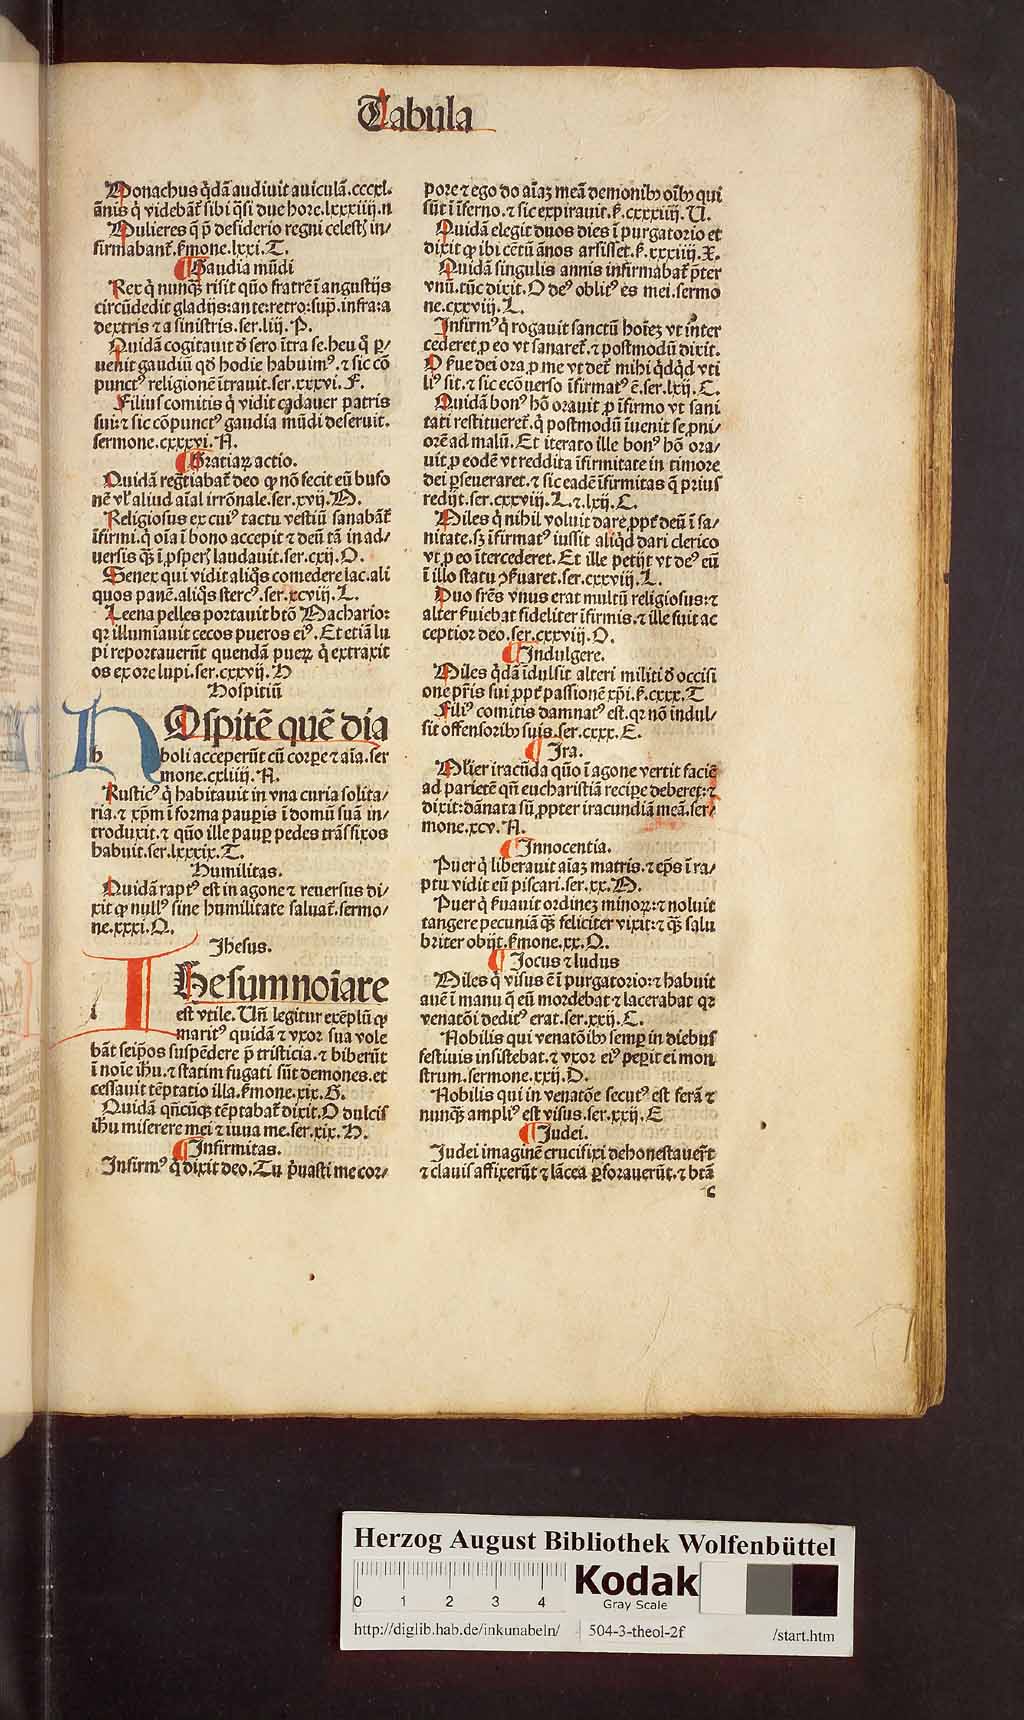 Tabula
Monachus q̇dã audiuit auiculã.ccccxl.
ãnis q̇ videbãt̉ sibi q̇si due hore.lxxxiiij.n
Mulieres q̃ p̃ desiderio regni celestꝭ in/
firmabant̉.ẜmone.lxxi.T.
¶ Gaudia mũdi
Rex q̇ nunqȝ risit quõ fratrẽ ĩ angustijs
circũdedit gladijs:ante:retro:sup̃.infra:a
dextris ⁊ a sinistris.ser.liij.P.
Quidã cogitauit đ sero ĩtra se.heu q̃ ꝑ/
uenit gaudiũ qđ hodie habuimꝰ.⁊ sic cõ
punctꝰ religionẽ ĩtrauit.ser.xxxvi.F.
Filius comitis q̇ vidit cadauer patris
sui:⁊ sic cõpunctꝰ gaudia mũdi deseruit.
sermone.cxxxvi.A.
¶ Gratiaꝝ actio.
Quidã reg̃tiabat̉ deo ꝙ nõ fecit eũ bufo
nẽ vl̉ aliud aĩal irrõnale.ser.xvij.M.
Religiosus ex cuiꝰ tactu vestiũ sanabãt̉
ĩfirmi.q̇ oĩa ĩ bono accepit ⁊ deũ tã in ad/
uersis qȝ̃ ĩ ꝓsperꝭ laudauit.ser.cxij.O.
Senex qui vidit aliq̇s comedere lac.ali
quos panẽ.aliq̇s stercꝰ.ser.xcviij.L.
Leena pelles portauit btõ Machario:
qꝛ illumĩauit cecos pueros eiꝰ.Et etiã lu
pi reportauerũt quendã pueꝝ q̇ extraxit
os ex ore lupi.ser.cxxvij.H
Hospitiũ
h Ospitẽ quẽ dia
boli acceperũt cũ corpe ⁊ aĩa.ser
mone.cxliiij.A.
Rusticꝰ q̇ habitauit in vna curia solita/
ria.⁊ xp̃m ĩ forma pauꝑis ĩ domũ suã in/
troduxit.⁊ quõ ille pauꝑ pedes trãsfixos
habuit.ser.lxxxix.T.
Humilitas.
Quidã raptꝰ est in agone ⁊ reuersus di/
xit ꝙ nullꝰ sine humilitate saluat̉.sermo/
ne.xxxi.Q.
Jhesus.
i Hesum noĩare
est vtile. Uñ legitur exẽplũ ꝙ
maritꝰ quidã ⁊ vxor sua vole
bãt seip̃os suspẽdere p̃ tristicia.⁊ biberũt
ĩ noĩe ihũ.⁊ statim fugati sũt demones.et
cessauit tẽptatio illa.ẜmone.xix.G.
Quidã qñcũqȝ tẽptabat̉ dixit.O dulcis
ihũ miserere mei ⁊ iuua me.ser.xix.H.
¶ Infirmitas.
Infirmꝰ q̇ dixit deo.Tu p̃uasti me cor/
pore ⁊ ego do aĩaȝ meã demonibꝰ oĩbꝰ qui
sũt ĩ ĩferno.⁊ sic expirauit.ẜ.cxxxiiij.U.
Quidã elegit duos dies ĩ purgatorio et
dixit ꝙ ibi cẽtũ ãnos arsisset.ẜ.xxxiiij.X.
Quidã singulis annis infirmabat̉ p̃ter
vnũ.tũc dixit.O deꝰ oblitꝰ es mei.sermo
ne.cxxviij.L.
Infirmꝰ q̇ rogauit sanctũ hoĩeȝ vt inter
cederet ꝓ eo vt sanaret̉.⁊ postmodũ dixit.
O ẜue dei ora ꝓ me vt det̉ mihi q̇dq̇d vti
liꝰ sit.⁊ sic ecõuerso ĩfirmatꝰ ẽ.ser.lxij.C.
Quidã bonꝰ hõ orauit ꝓ ĩfirmo vt sani
tati restitueret̉.q̇ postmodũ ĩuenit se pni/
orẽ ad malũ. Et iterato ille bonꝰ hõ ora/
uit ꝓ eodẽ vt reddita ĩfirmitate in timore
dei ꝑseueraret.⁊ sic eadẽ ĩfirmitas q̃ prius
redijt.ser.cxxviij.L.⁊ lxij.C.
Miles q̇ nihil voluit dare ꝓpt̉ deũ ĩ sa/
nitate.sȝ ĩfirmatꝰ iussit aliq̇d dari clerico
vt ꝓ eo ĩtercederet. Et ille petijt vt deꝰ eũ
ĩ illo statu ꝯẜuaret.ser.cxxviij.L.
Duo fr̃es vnus erat multũ religiosus:⁊
alter ẜuiebat fideliter ĩfirmis.⁊ ille fuit ac
ceptior deo.ser.cxxviij.O.
¶ Indulgere.
Miles q̇dã ĩdulsit alteri militi đ occisi
one pr̃is sui ꝓpt̉ passionẽ xp̃i.ẜ.cxxx.T
Filiꝰ comitis damnatꝰ est.qꝛ nõ indul/
sit offensoribꝰ suis.ser.cxxx.E.
¶ Ira.
Ml̉ier iracũda quõ ĩ agone vertit faciẽ
ad parietẽ qñ eucharistiã recipe deberet:⁊
dixit:dãnata sũ ꝓpter iracundiã meã.ser/
mone.xcv.A.
¶ Innocentia.
Puer q̇ liberauit aĩaȝ matris.⁊ ep̃s ĩ ra/
ptu vidit eũ piscari.ser.xx.M.
Puer q̇ ẜuauit ordineȝ minoꝝ:⁊ noluit
tangere pecuniã qȝ̃ feliciter vixit:⁊ qȝ̃ salu
briter obijt.ẜmone.xx.Q.
¶ Jocus ⁊ ludus
Miles q̇ visus ẽ ĩ purgatorio:⁊ habuit
auẽ ĩ manu q̃ eũ mordebat ⁊ lacerabat qꝛ
venatõi deditꝰ erat.ser.xxij.C.
Nobilis qui venatõibꝰ semꝑ in diebus
festiuis insistebat.⁊ vxor eiꝰ peꝑit ei mon
strum.sermone.xxij.D.
Nobilis qui in venatõe secutꝰ est ferã ⁊
nunqȝ̃ ampliꝰ est visus.ser.xxij.E
¶ Judei.
Judei imaginẽ crucifixi dehonestauer̃t
⁊ clauis affixerũt ⁊ lãcea ꝑforauerũt.⁊ btã
c
Herzog August Bibliothek Wolfenbüttel
0 1 2 3 4
Kodak
Gray Scale
http://diglib.hab.de/inkunabeln/ 504-3-theol-2f /start.htm